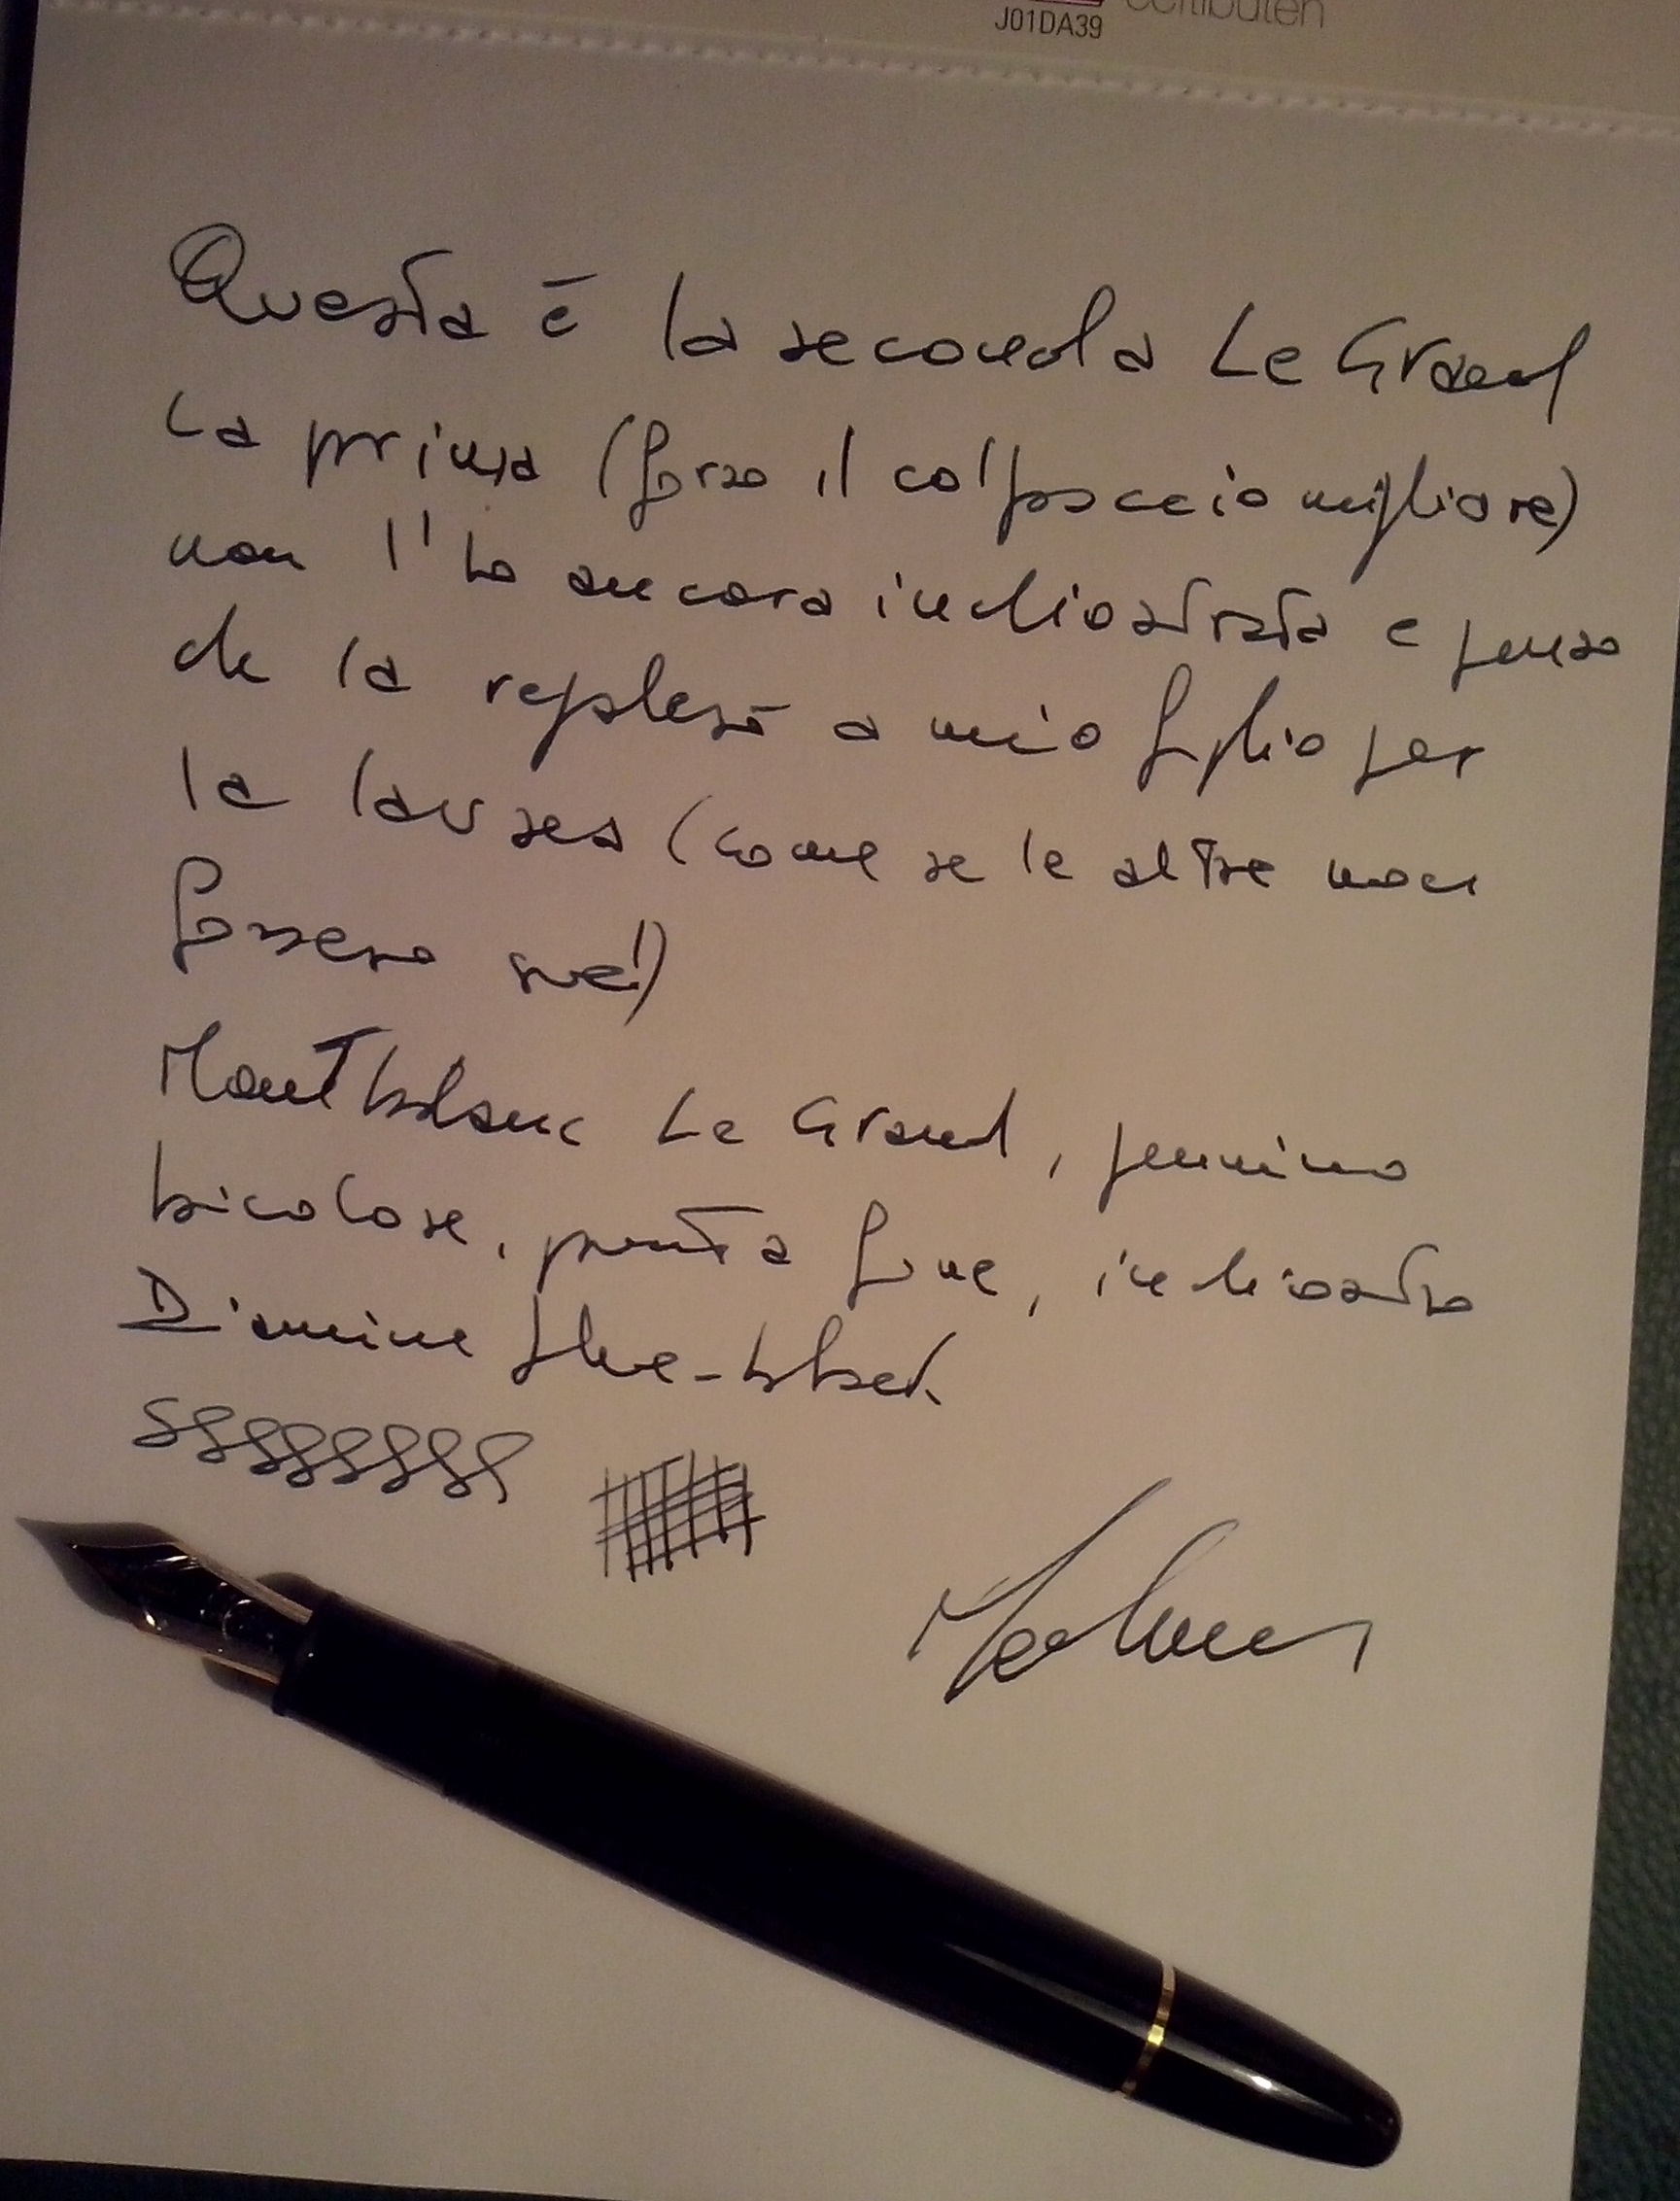 J01DA39
Questa è la seconda Le Grand
La prima (forse il colpaccio migliore)
non l'ho ancora inchiostrata e penso
che la regalerò a mio figlio per
la laurea (come se le altre non
fossero sue!)
Montblanc Le Grand, pennino
bicolore, punta fine, inchiostro
Diamine blue-black